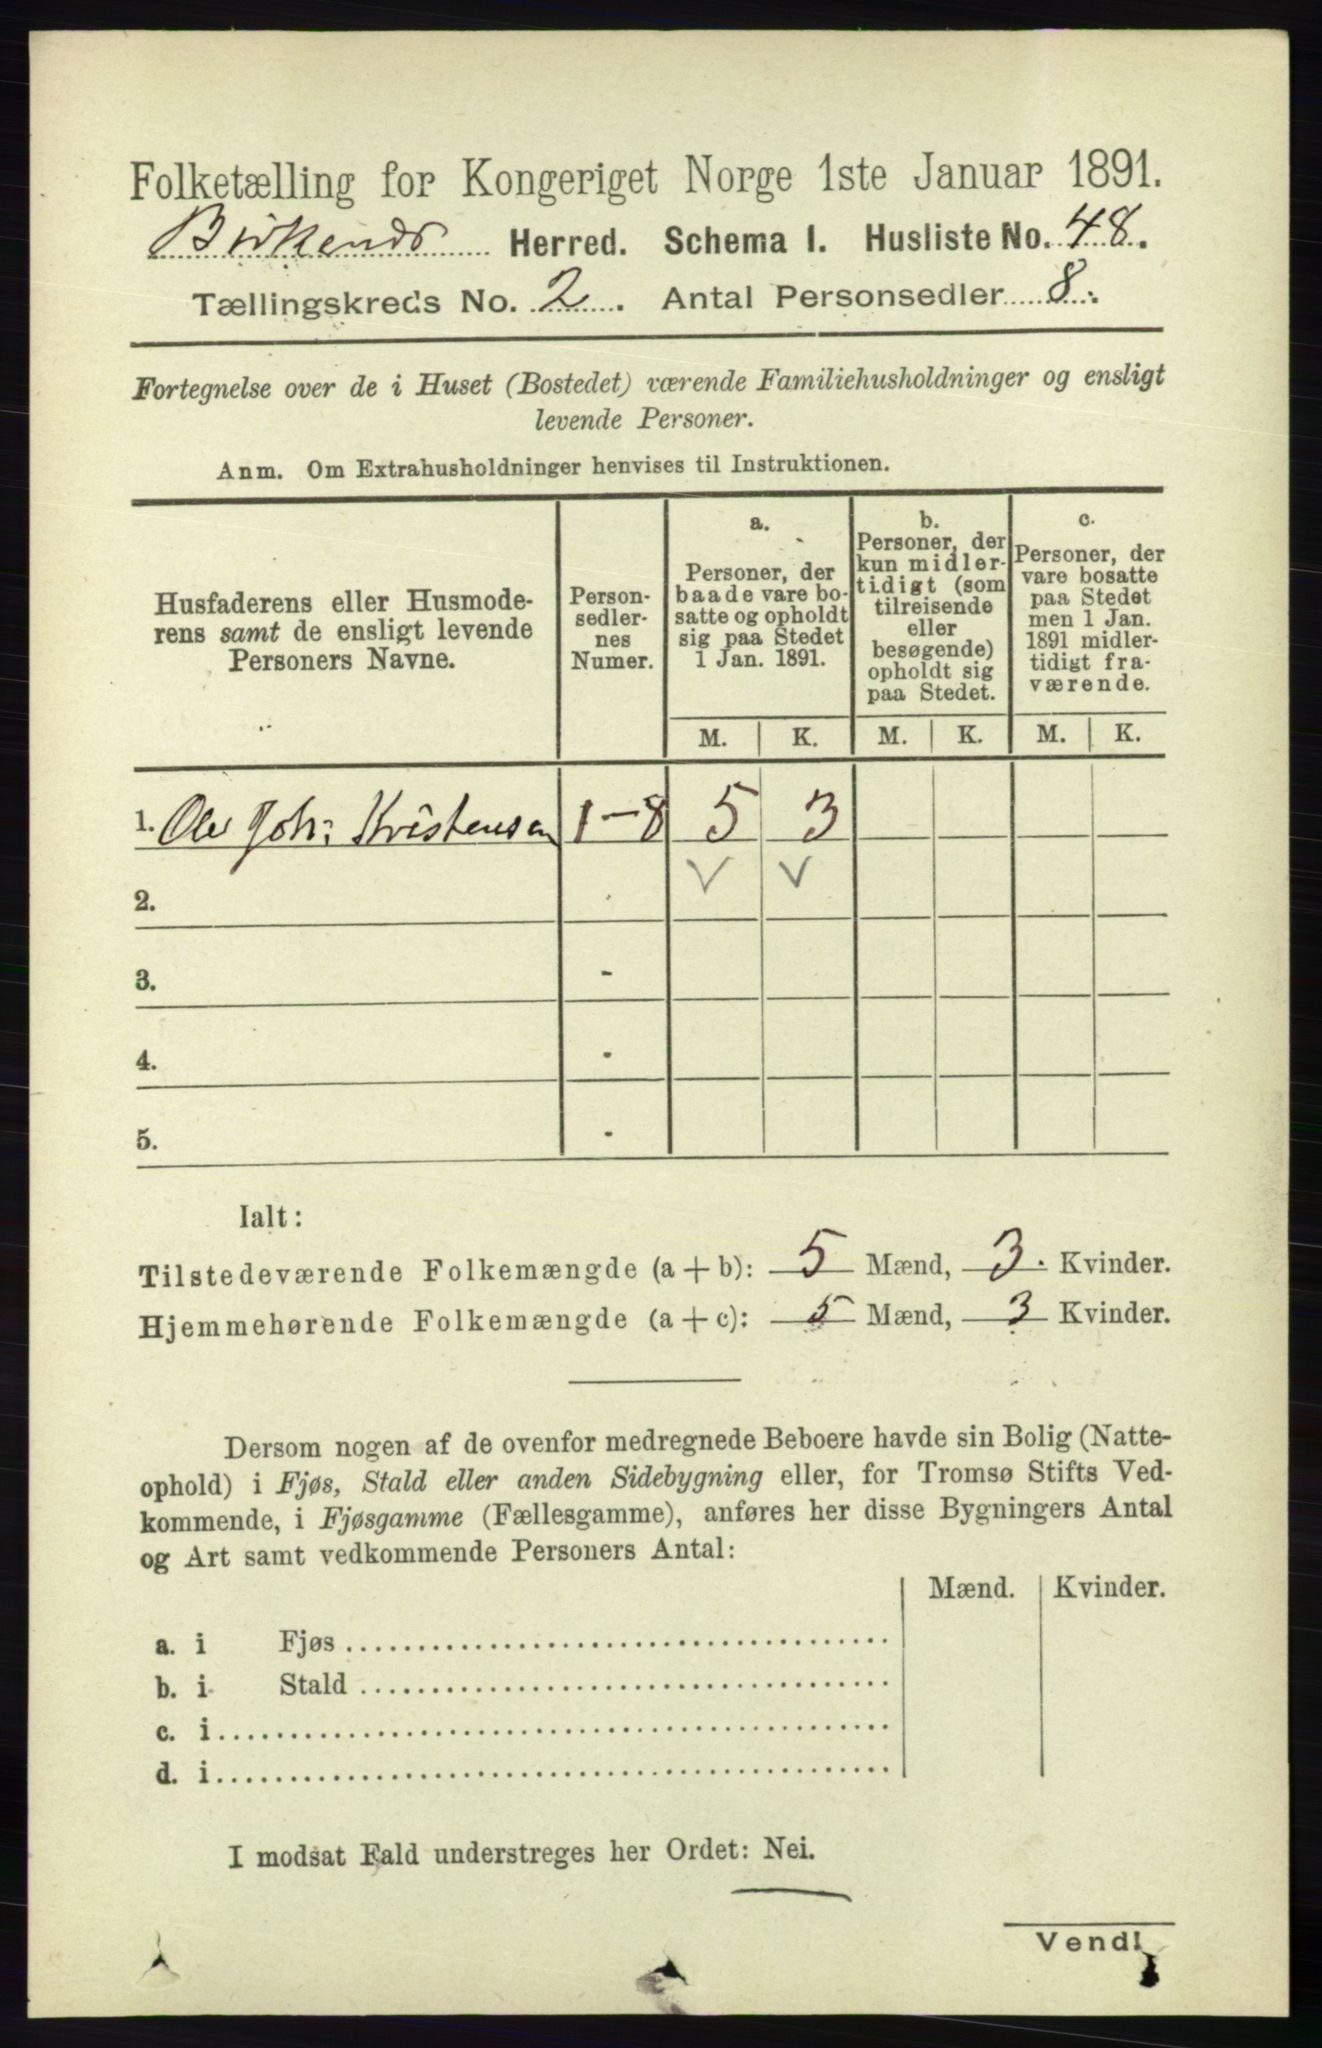 Folketælling for Kongeriget Norge 1ste Januar 1891.
Birkenes Herred. Schema I. Husliste No. 48.
Tællingskreds No. 2. Antal Personsedler 8.
Fortegnelse over de i Huset (Bostedet) værende Familiehusholdninger og ensligt
levende Personer.
Anm. Om Extrahusholdninger henvises til Instruktionen.
Husfaderens eller Husmode-
rens samt de ensligt levende
Personers Navne.
Person-
sedler-
nes
Numer.
a.
Personer, der
baade vare bo-
satte og opholdt
sig paa Stedet
1 Jan. 1891.
b.
Personer, der
kun midler-
tidigt (som
tilreisende
eller
besøgende)
opholdt sig
paa Stedet.
c.
Personer, der
vare bosatte
paa Stedet
men 1 Jan.
1891 midler-
tidigt fra-
værende.
M. K. M. K. M. K.
1. Ole Joh: Kristensen 1-8 5 3
2.
3. -
4. -
5. -
Ialt:
Tilstedeværende Folkemængde (a + b): 5 Mænd, 3. Kvinder.
Hjemmehørende Folkemængde (a + c): 5 Mænd, 3 Kvinder.
Dersom nogen af de ovenfor medregnede Beboere havde sin Bolig (Natte-
ophold) i Fjøs, Stald eller anden Sidebygning eller, for Tromsø Stifts Ved-
kommende, i Fjøsgamme (Fællesgamme), anføres her disse Bygningers Antal
og Art samt vedkommende Personers Antal:
Mænd. Kvinder.
a. i Fjøs
b. i Stald
c. i
d. i
I modsat Fald understreges her Ordet: Nei.
Vend!